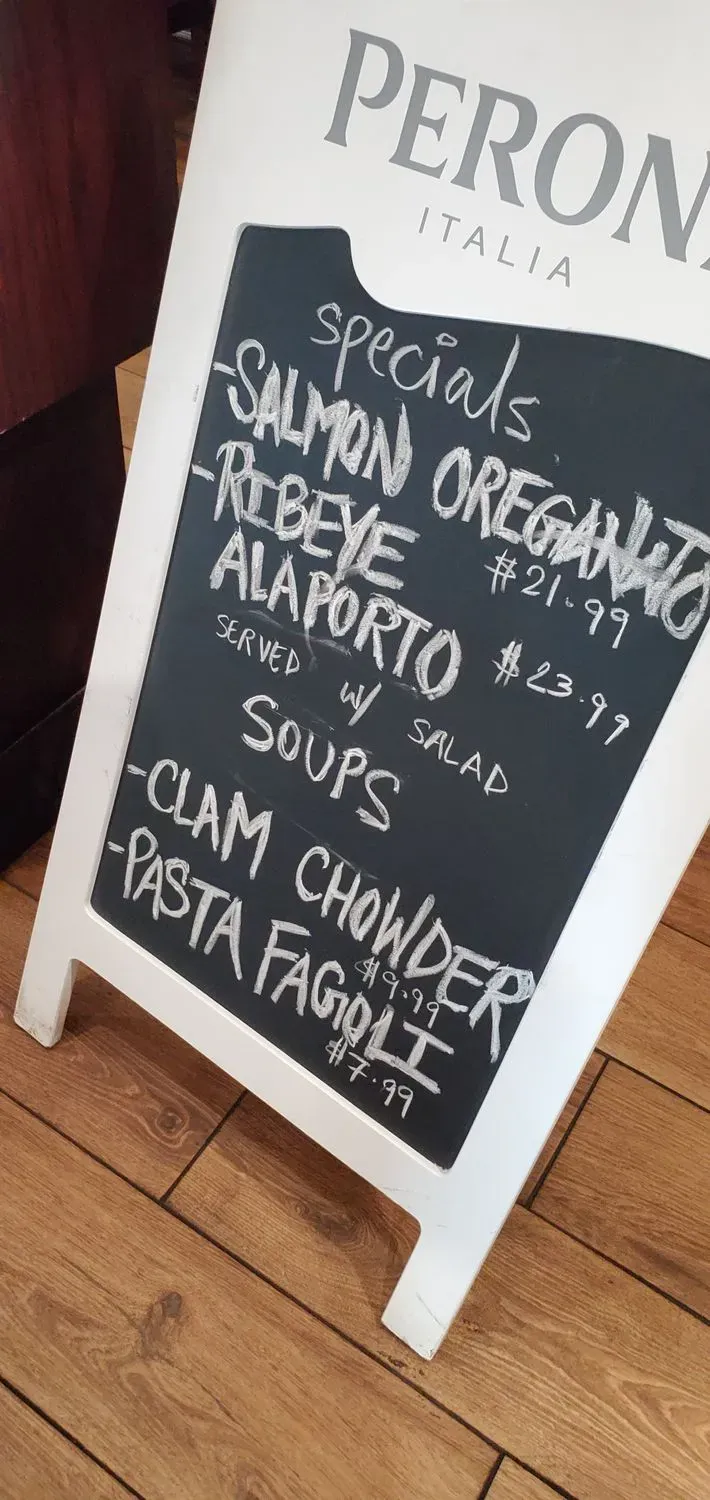 PERON
ITALIA
specials
-SALMON OREGANATO
$21.99
-RIBEYE
ALAPORTO $23.99
SERVED w/ SALAD
SOUPS
-CLAM CHOWDER
$9.99
-PASTA FAGIOLI
$7.99